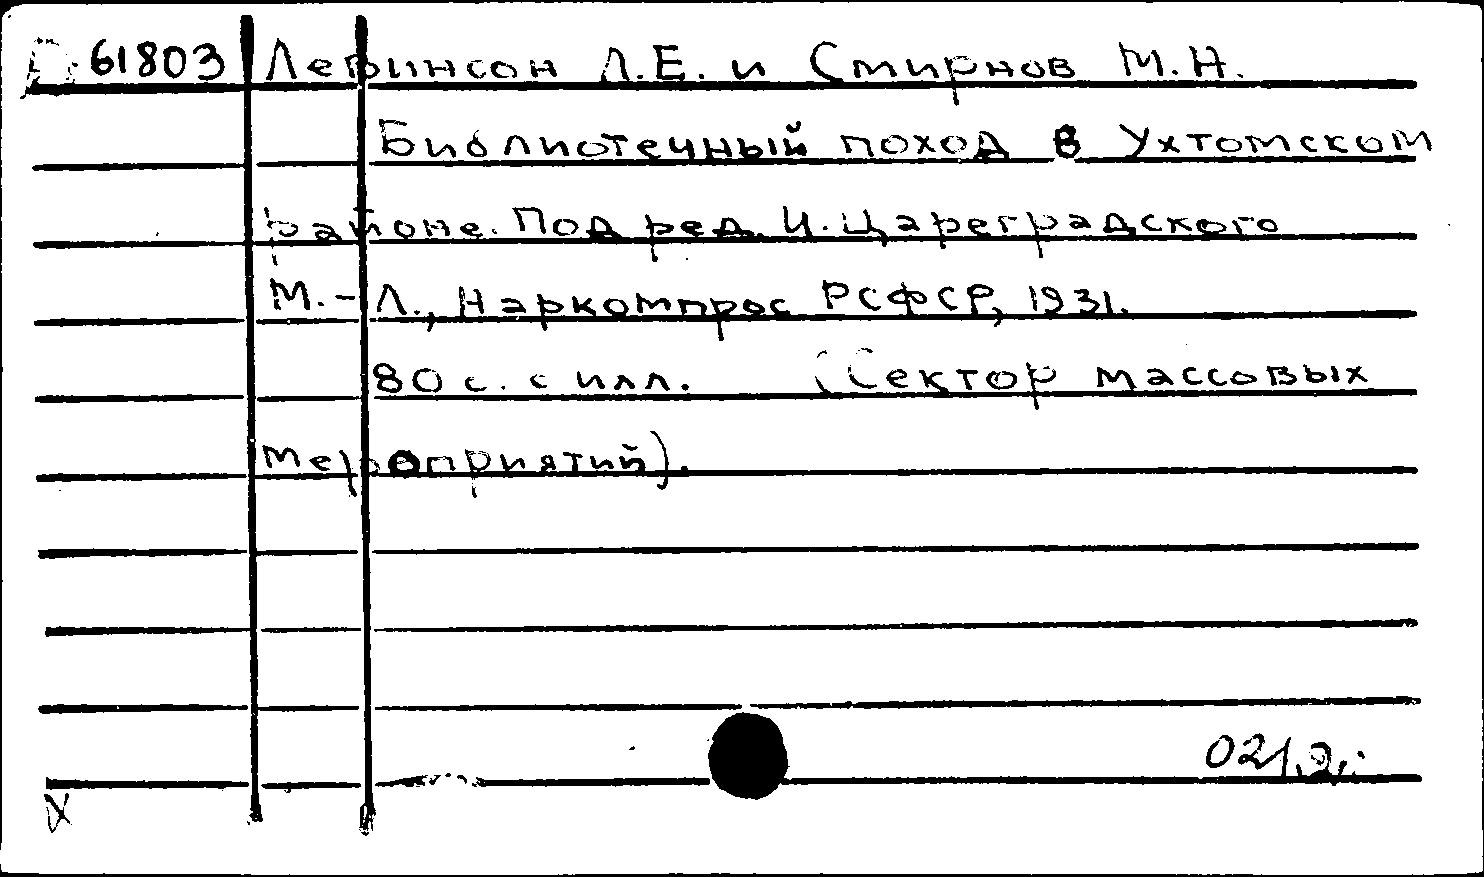 61803 Левинсон Л.Е. и Смирнов М.Н.
Библиотечный поход в Ухтомском
районе. Под ред. И. Цареградского
М.-Л., Наркомпрос РСФСР, 1931.
80 с. с илл. (Сектор массовых
мероприятий).
021.2.